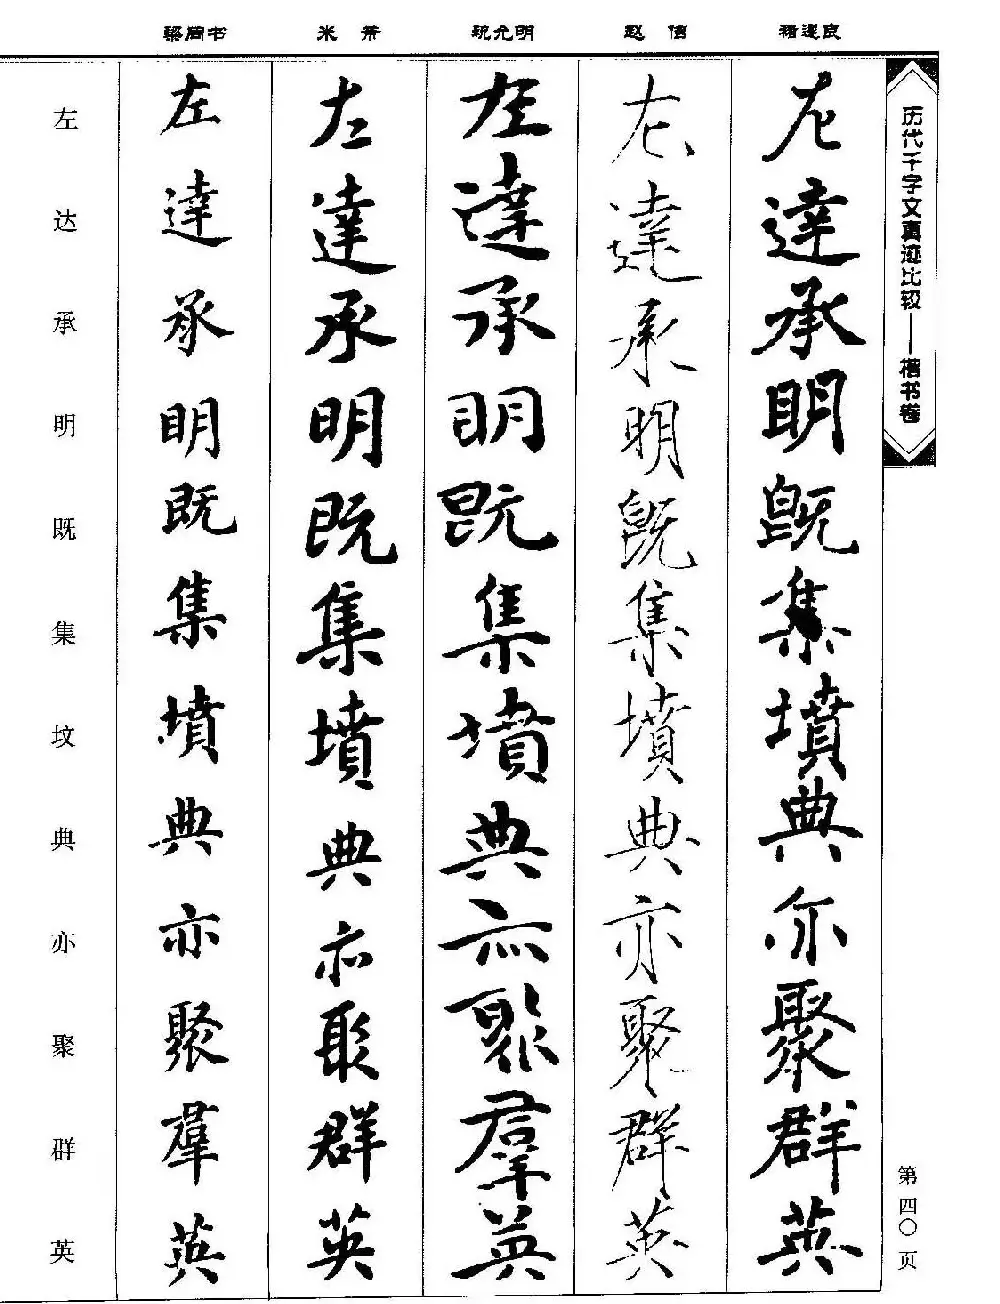 历代千字文真迹比较——楷书卷
第四〇页
褚遂良
左達承明既集墳典亦聚群英
赵 佶
左達承明既集墳典亦聚群英
祝允明
左達承明既集墳典亦聚羣英
米 芾
左達承明既集墳典亦聚群英
梁同书
左達承明既集墳典亦聚羣英
左达承明既集坟典亦聚群英